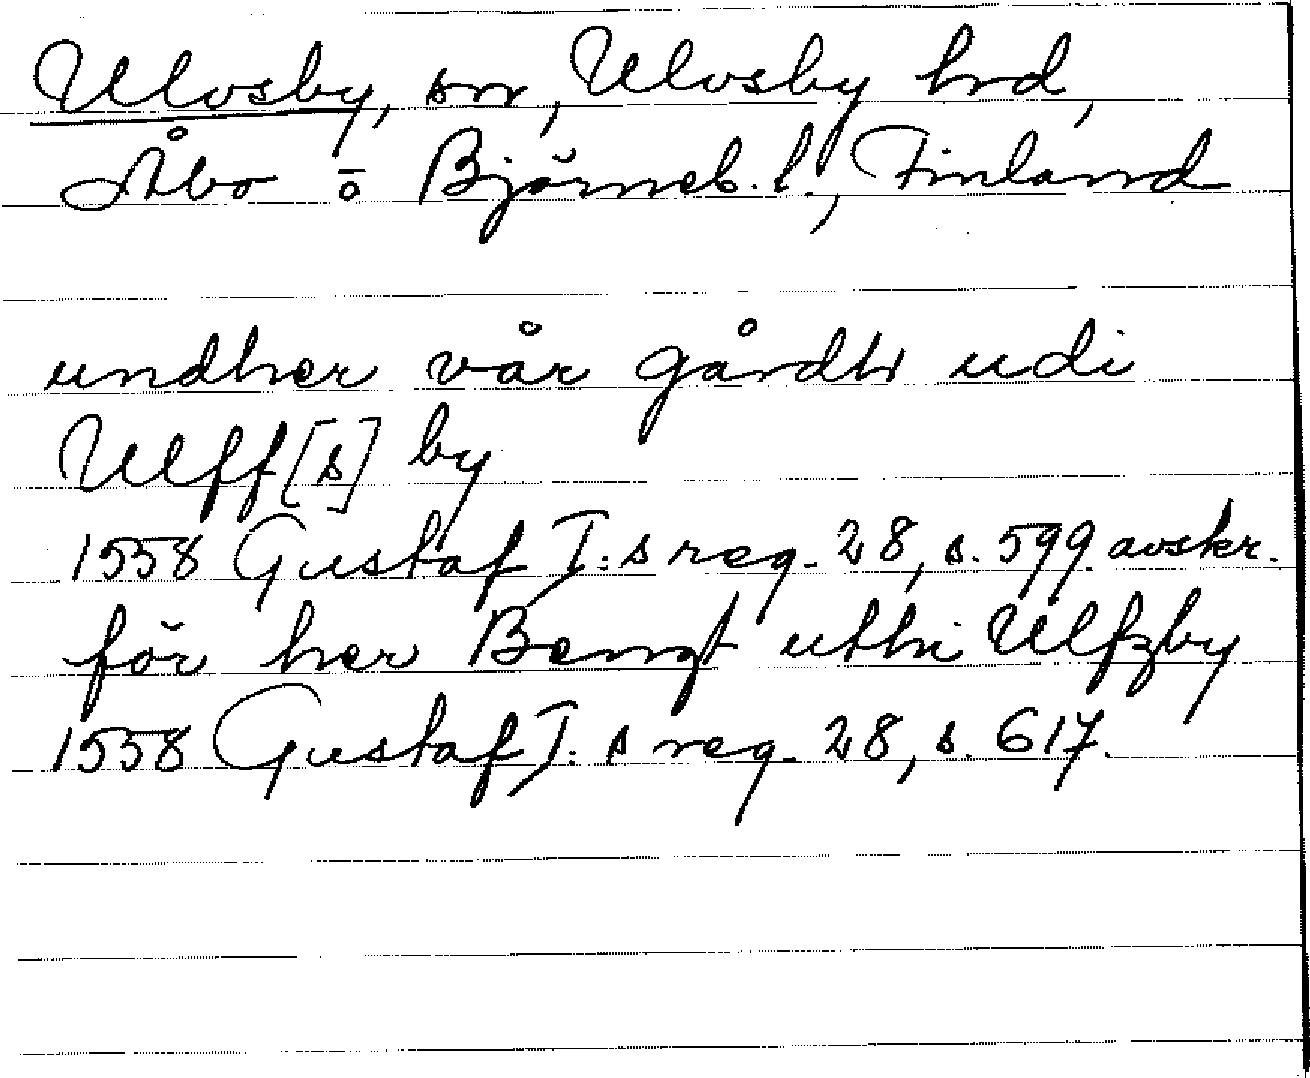 Ulvsby, sn, Ulvsby hrd,
Åbo o Björneb. l., Finland
undher vår gårdh udi
Ulff[s] by
1558 Gustaf I:s reg. 28, s. 599 avskr.
för her Bengt uthi Ulfzby
1558 Gustaf I:s reg. 28, s. 617.